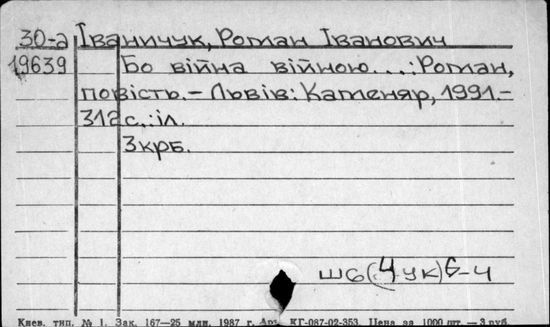 30-а Іваничук, Роман Іванович
19639 Бо війна війною...: Роман,
повість. – Львів: Каменяр, 1991. –
312 с.: іл.
3 крб.
Ш6(4УК)6-4
Киев. тип. № 1. Зак. 167—25 млн. 1987 г. Арк. КГ-087-02-353. Цена за 1000 шт. — 3 руб.